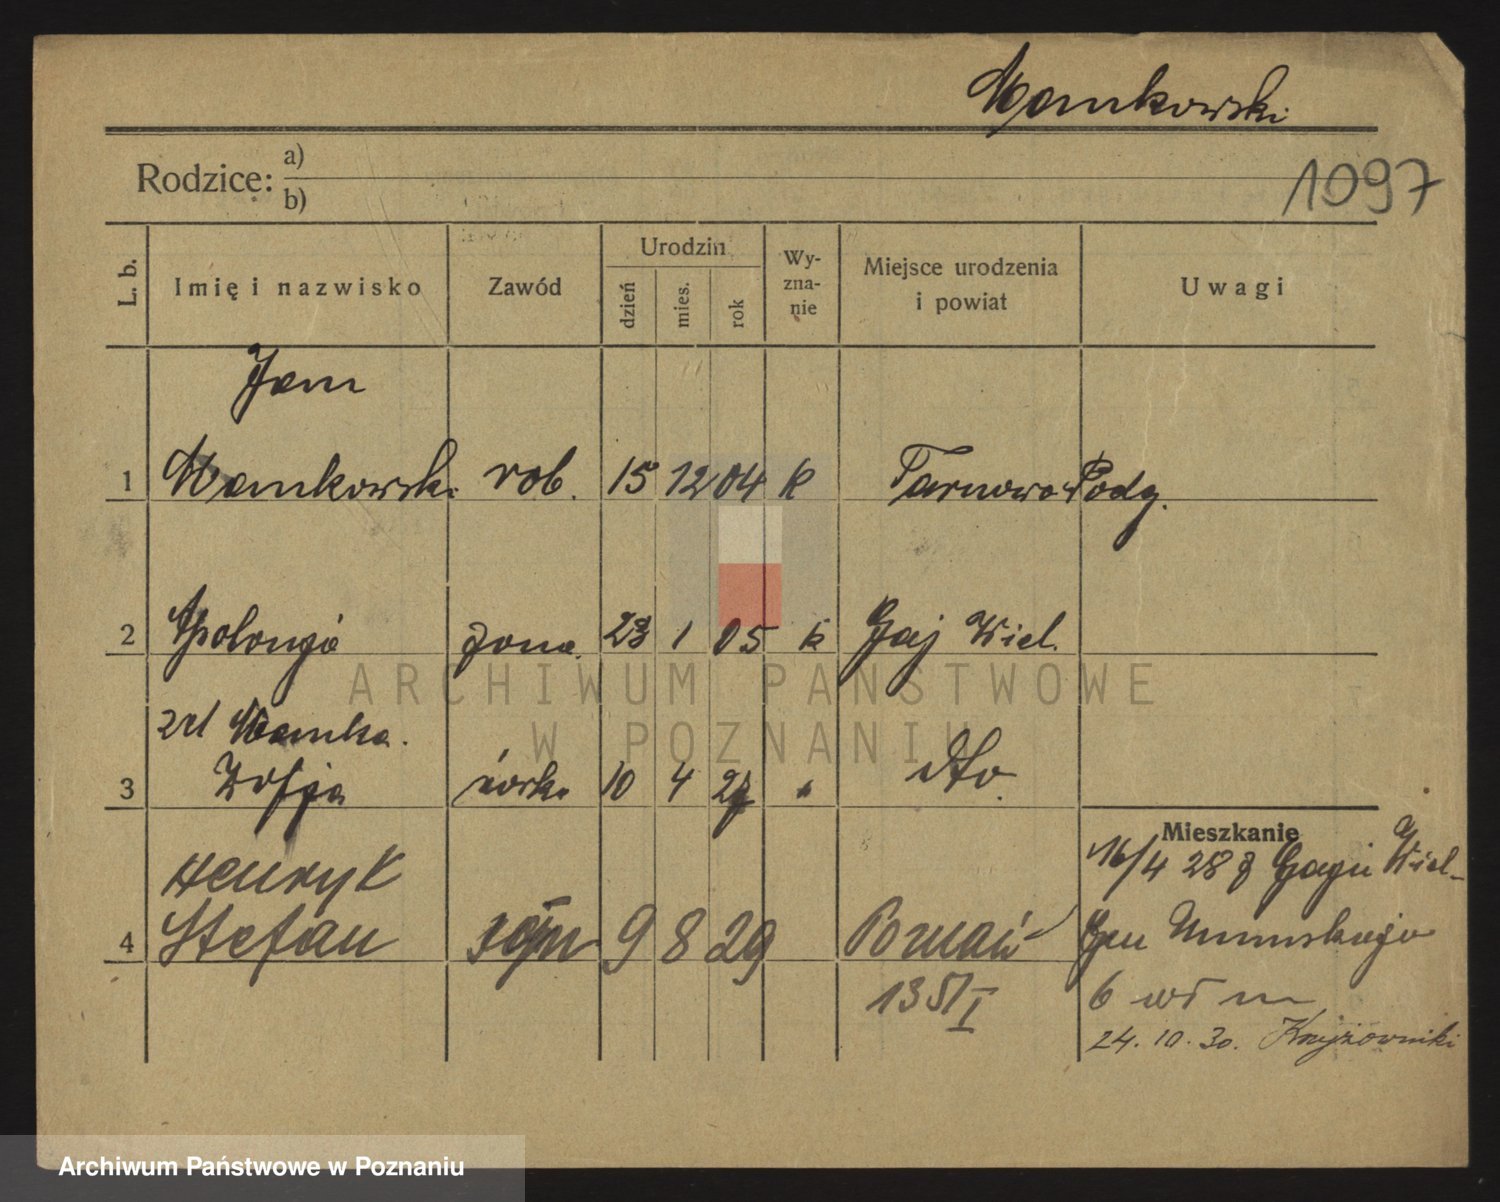 Mankowski
1097
Rodzice: a)
b)
L. b. Imię i nazwisko Zawód Urodzin dzień mies. rok Wy-zna-nie Miejsce urodzenia i powiat Uwagi
Jan
1 Mankowski rob. 15 12 04 k Tarnowo Podg.
2 Apolonja żona 1 05 k Gaj Wiel.
Manka.
3 Zofja córka 10 4 dto.
Mieszkanie
16/4 28 z Gaju Wiel.
Henryk
4 Stefan syn 9 8 29 Poznań
135/I
6 wł m
24. 10. 30. Krzyżowniki
ARCHIWUM PAŃSTWOWE
W POZNANIU
Archiwum Państwowe w Poznaniu